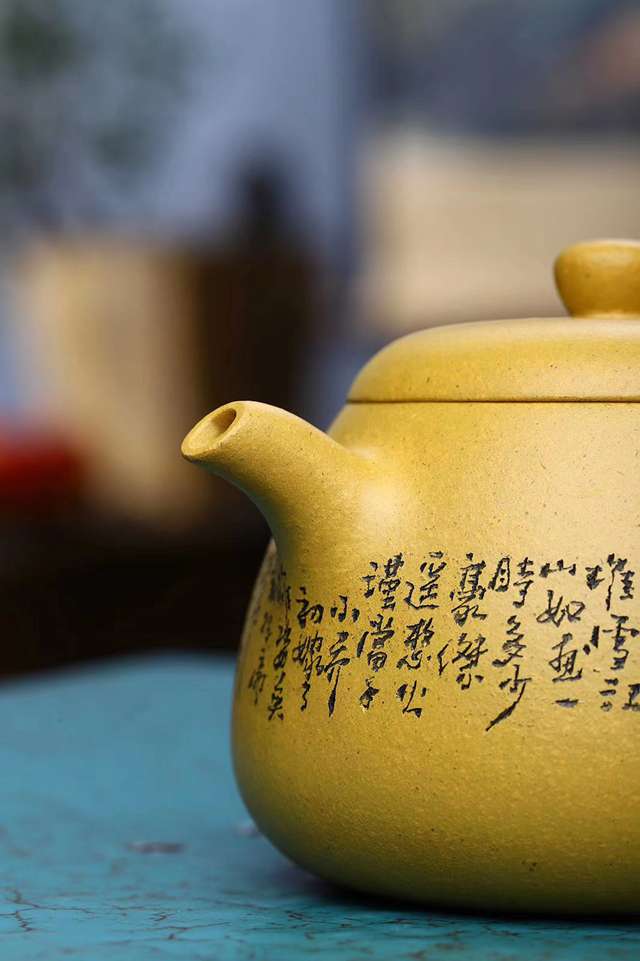 堆雪江
山如画一
時多少
豪傑
遥想公
瑾當年
小乔
初嫁了
雄姿英